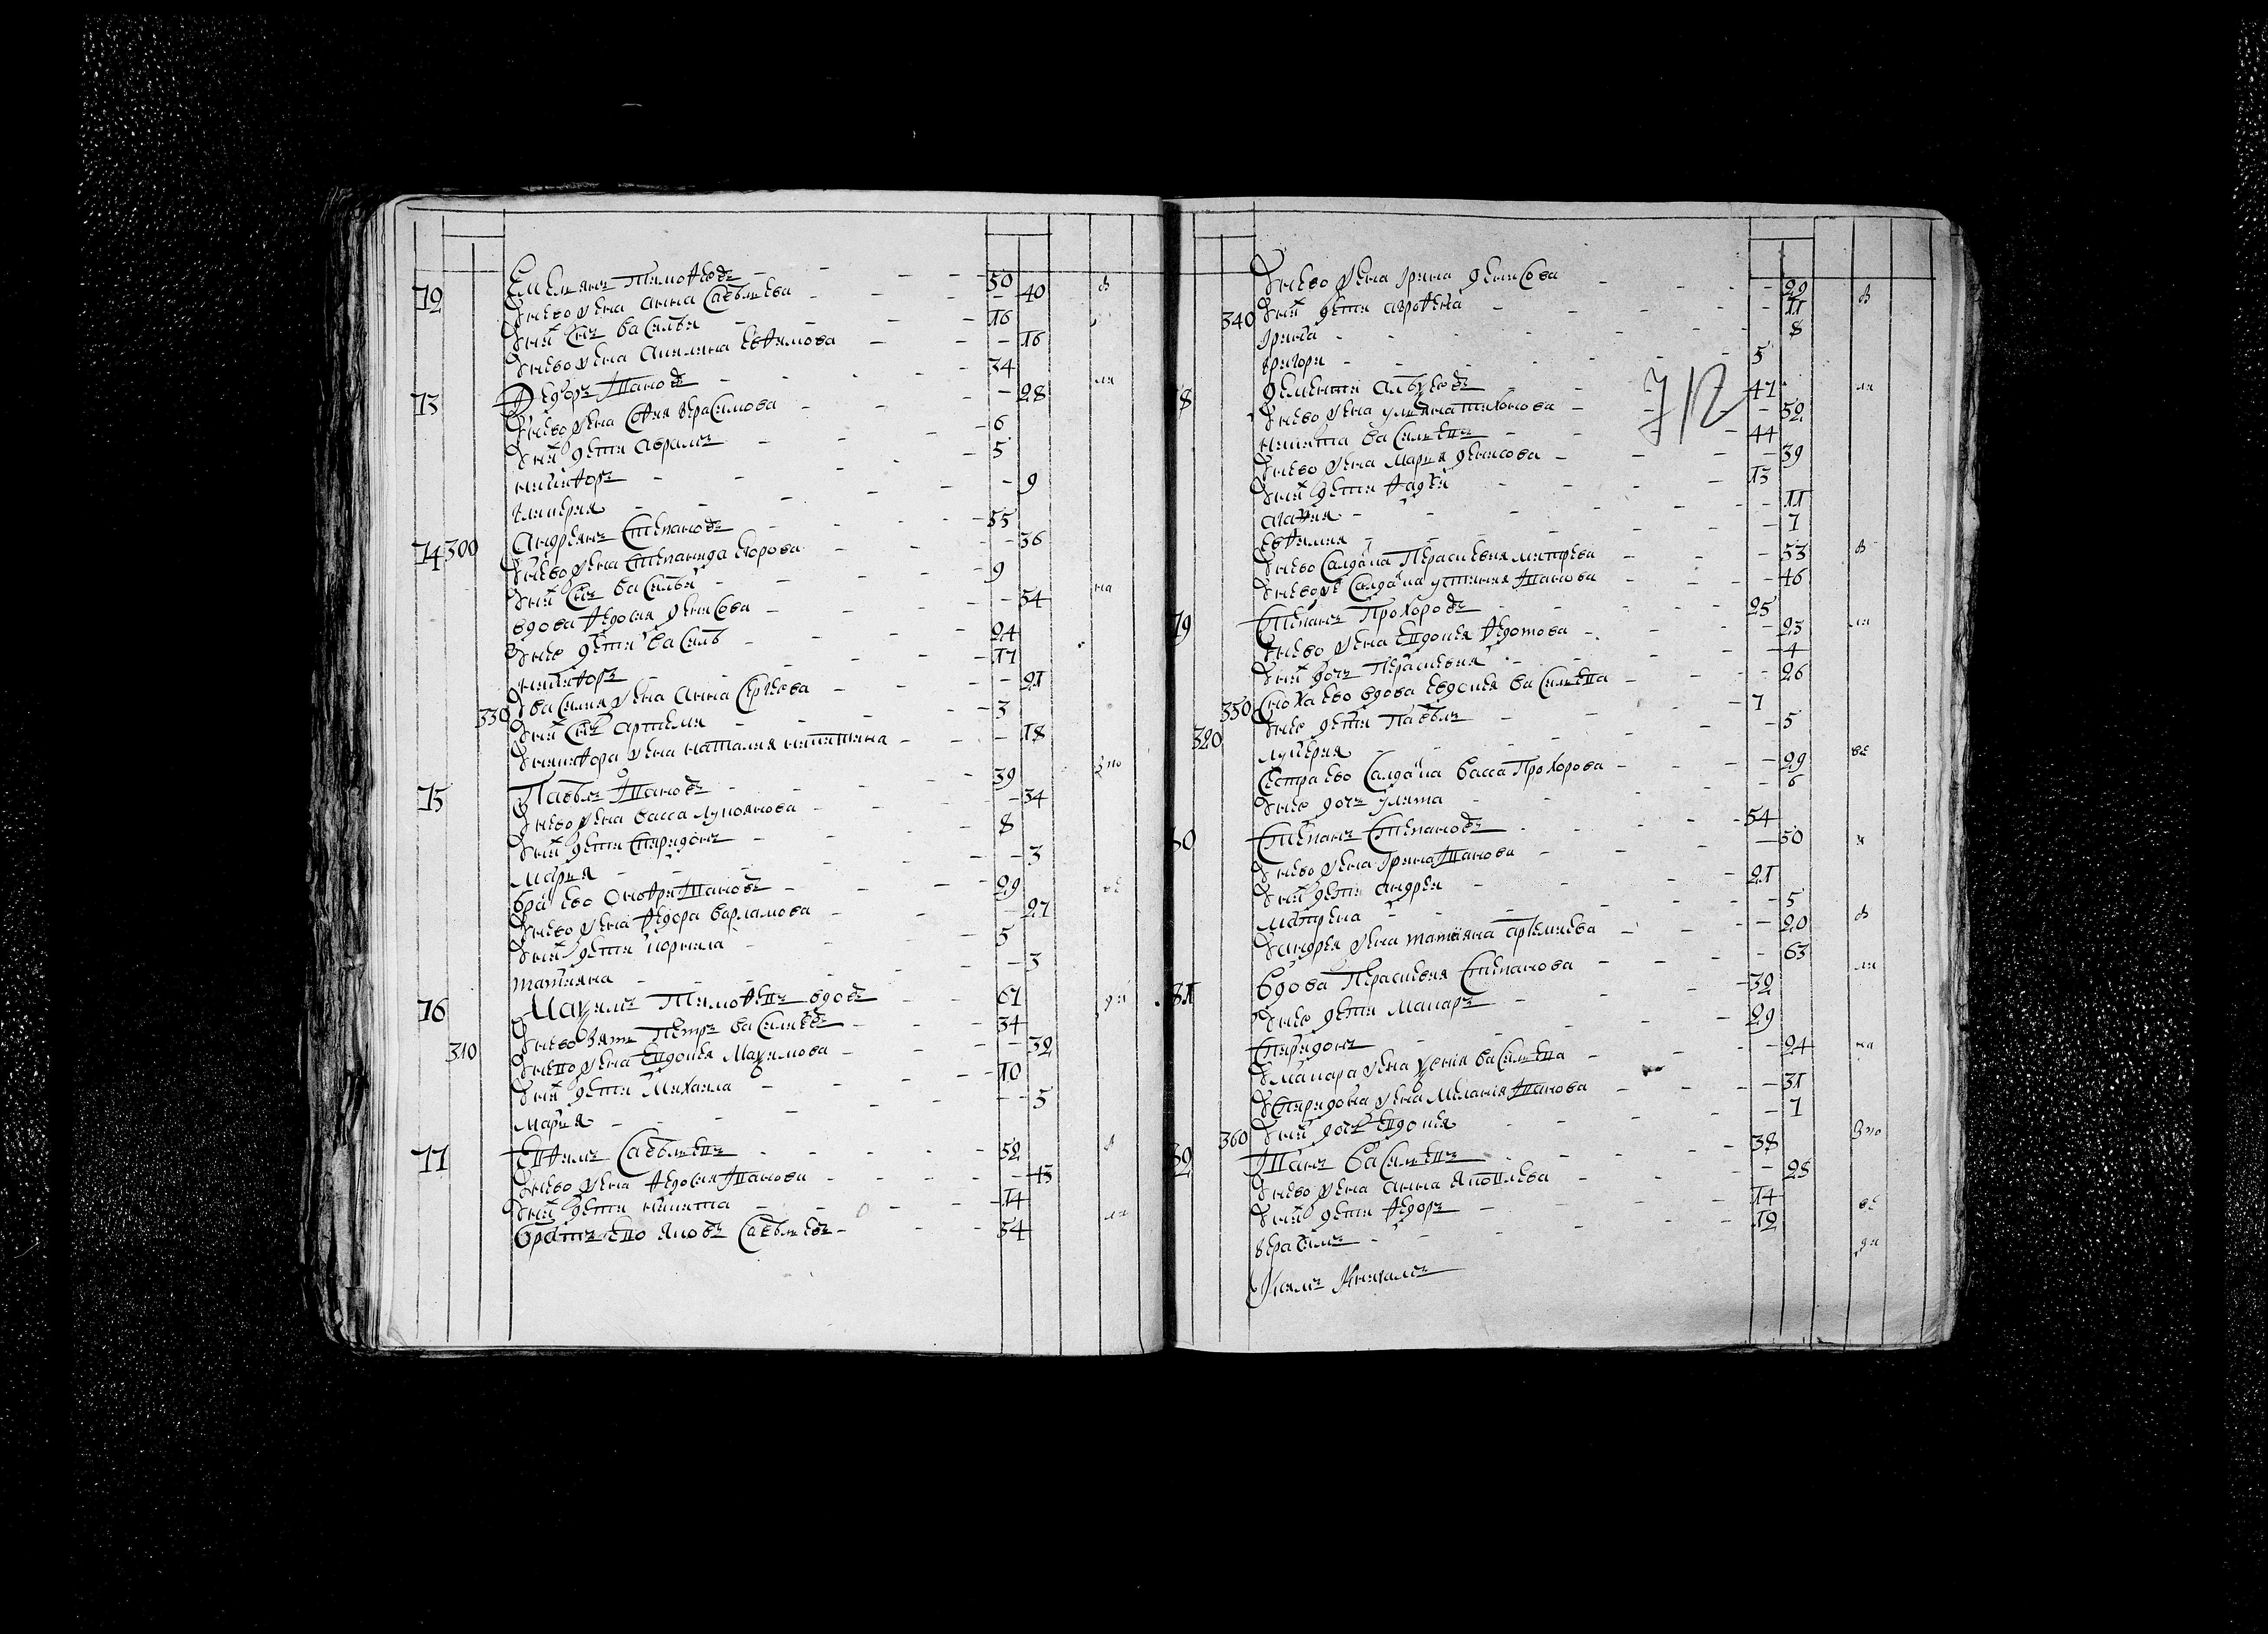 72 Емельянъ Тимофеевъ 50
У него жена Анна Савельева 40
У них сынъ Василей 16
У него жена Акилина Ефимова 16
73 Федоръ Ивановъ 34
У него жена София Герасимова 28
У них дети Аврамъ 6
Никифоръ 5
Гликерия 9
74 300 Андреянъ Степановъ 35
У него жена Степанида Егорова 36
У них сынъ Василей 9
вдова Федосия Денисова 54 на
У нее дети Василь 24
Никифоръ 17
330 У Василия жена Анна Сергеева 21
У них сынъ Артемий 3
У Никифора жена Наталия Никитина 18
75 Павелъ Ивановъ 39
У него жена Васса Лукоянова 34
У них дети Спиридонъ 8
Мария 3
Братъ ево Онофри Ивановъ 29
У него жена Федора Варламова 27
У них дети Корнила 5
Татияна 3
76 Максимъ Тимофеевъ вдовъ 67
У него зять Петръ Василевъ 34
310 У него жена Евдокея Максимова 32
У них дети Михаила 10
Мария 5
77 Ефимъ Савельевъ 52
У него жена Федосия Иванова 43
У них дети Никита 14
Братъ ево Яковъ Савельевъ 54
У него жена Ирина Денисова 29
340 У них дети Аврофена 11
Ирина 8
Григори 5
712
78 Дементи Алексеевъ 47
У него жена Ульяна Тихонова 52
Никита Васильевъ 44
У него жена Мария Денисова 39
У них дети Фадей 13
Агафия 11
Евфимия 7
У него салдатка Парасковия Митрева 53
У него ж салдатка Устиния Иванова 46
79 Степанъ Прохоровъ 25
У него жена Евдокея Федотова 23
У них дочь Парасковия 4
Сноха ево вдова Евдокея Васильева 26
350 У нее дети Павелъ 7
320 Лукерия 5
Сестра ево салдатка Васса Прохорова 29
У нее дочь Улита 6
80 Степанъ Степановъ 54
У него жена Ирина Иванова 50
У них дети Андрей 21
Матрена 5
У Андрея жена Татияна Артемиева 20
81 Вдова Парасковия Степанова 63
У нее дети Макаръ 32
Спиридонъ 29
У Макара жена Ксения Васильева 24
У Спиридона жена Мелания Иванова 31
360 У них дочь Евдокия 7
82 Иванъ Васильевъ 38
У него жена Анна Яковлева 28
У них дети Федоръ 14
Герасимъ 12